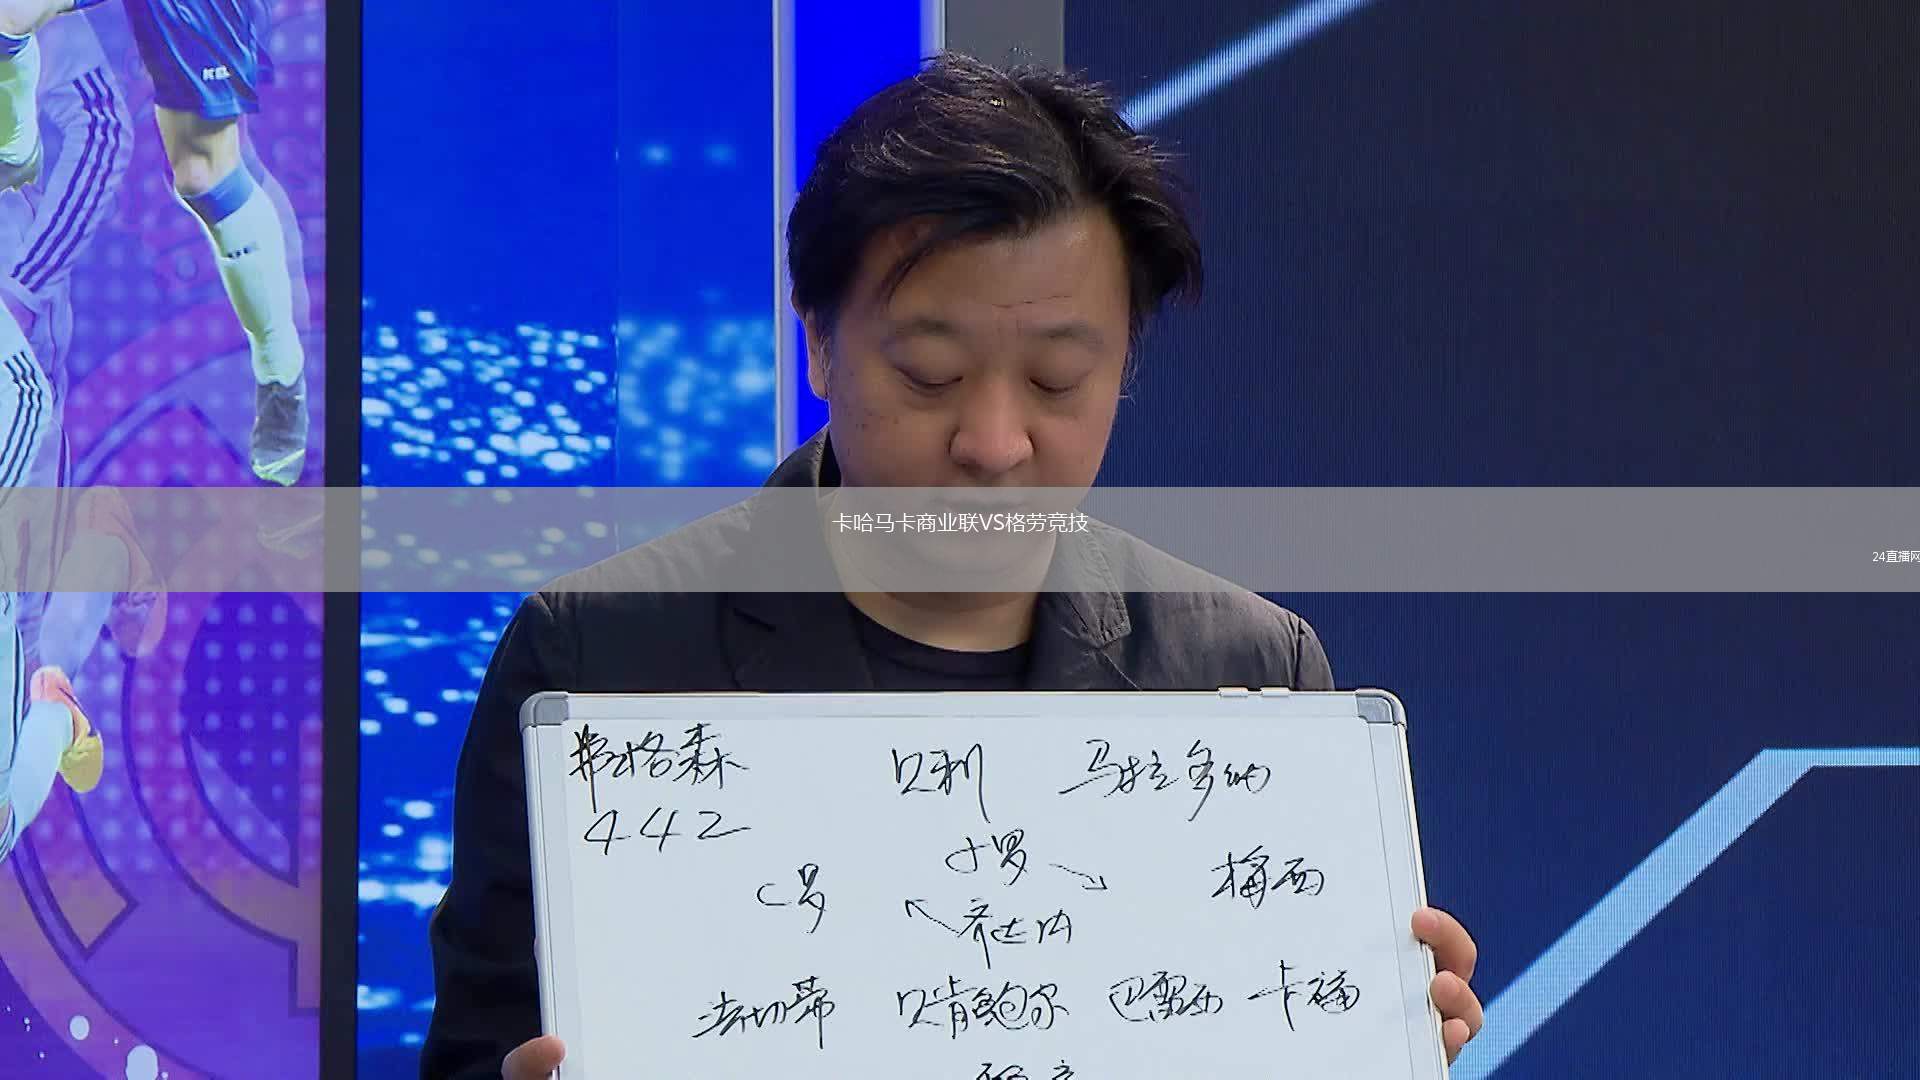 卡哈马卡商业联VS格劳竞技
24直播网
弗格森 贝利 马拉多纳
442
小罗
C罗 梅西
齐达内
法切蒂 贝肯鲍尔 巴雷西 卡福